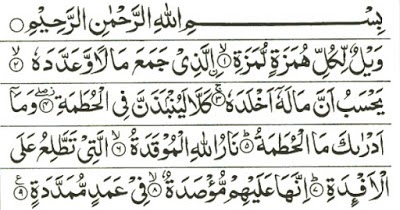 بِسْمِ اللهِ الرَّحْمٰنِ الرَّحِيْمِ ○
وَيْلٌ لِّكُلِّ هُمَزَةٍ لُّمَزَةِ ۙ﴿۱﴾ ۨالَّذِىْ جَمَعَ مَالًا وَّعَدَّدَهٗ ۙ﴿۲﴾
يَحْسَبُ اَنَّ مَالَهٗۤ اَخْلَدَهٗ ۚ﴿۳﴾ كَلَّا لَيُنْۢبَذَنَّ فِى الْحُطَمَةِ ۖ﴿۴﴾ وَمَاۤ
اَدْرٰىكَ مَا الْحُطَمَةُ ؕ﴿۵﴾ نَارُ اللهِ الْمُوْقَدَةُ ۙ﴿۶﴾ الَّتِىْ تَطَّلِعُ عَلَى
الْاَفْـِٕدَةِ ؕ﴿۷﴾ اِنَّهَا عَلَيْهِمْ مُّؤْصَدَةٌ ۙ﴿۸﴾ فِىْ عَمَدٍ مُّمَدَّدَةٍ ﴿۹﴾ ع